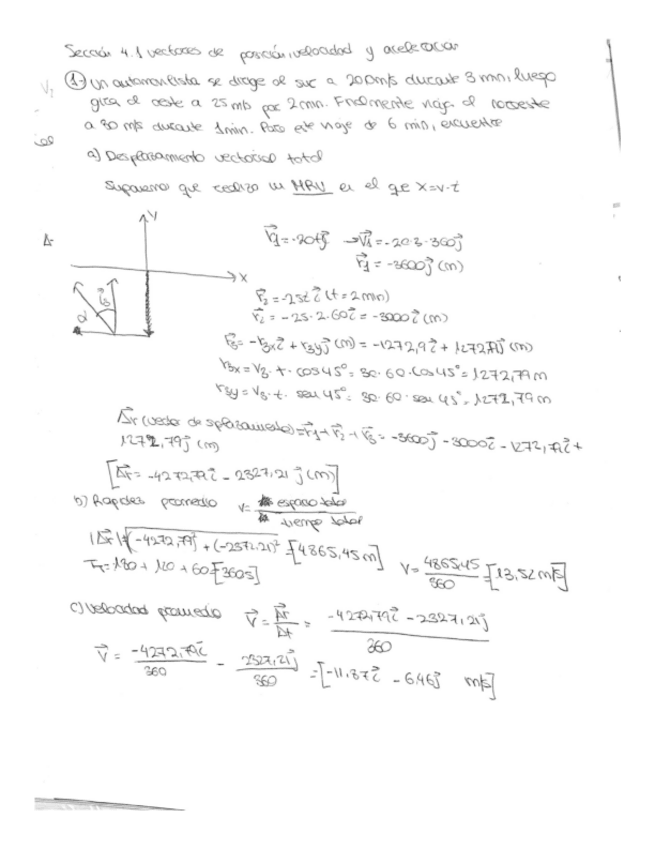 Sección 4.1 vectores de posición, velocidad y aceleración
① Un automovilista se dirige al sur a 20,0 m/s durante 3 min, luego
gira al oeste a 25 m/s por 2 min. Finalmente viaja al noroeste
a 30 m/s durante 1 min. Para este viaje de 6 min, encuentre
a) Desplazamiento vectorial total
Suponemos que realiza un MRU en el que X=v·t
Y
X
α
r⃗1 = -20t j⃗ → r⃗1 = -20·3·60 j⃗
r⃗1 = -3600 j⃗ (m)
r⃗2 = -25t i⃗ (t = 2 min)
r⃗2 = -25·2·60 i⃗ = -3000 i⃗ (m)
r⃗3 = -r3x i⃗ + r3y j⃗ (m) = -1272,9 i⃗ + 1272,79 j⃗ (m)
r3x = V3 · t · cos45° = 30·60·cos45° = 1272,79 m
r3y = V3 · t · sen45° = 30·60·sen45° = 1272,79 m
Δ⃗r (vector desplazamiento) = r⃗1 + r⃗2 + r⃗3 = -3600 j⃗ - 3000 i⃗ - 1272,79 i⃗ +
1272,79 j⃗ (m)
[Δ⃗r = -4272,79 i⃗ - 2327,21 j⃗ (m)]
b) Rapidez promedio v = espacio total / tiempo total
|Δ⃗r| = √(-4272,79)² + (-2372,21)² = [4865,45 m]
T_T = 180 + 120 + 60 = [360 s] V = 4865,45 / 360 = [13,52 m/s]
c) Velocidad promedio V⃗ = Δ⃗r / Δt = -4272,79 i⃗ - 2327,21 j⃗ / 360
V⃗ = -4272,79 i⃗ / 360 - 2327,21 j⃗ / 360 = [-11,87 i⃗ - 6,46 j⃗ m/s]